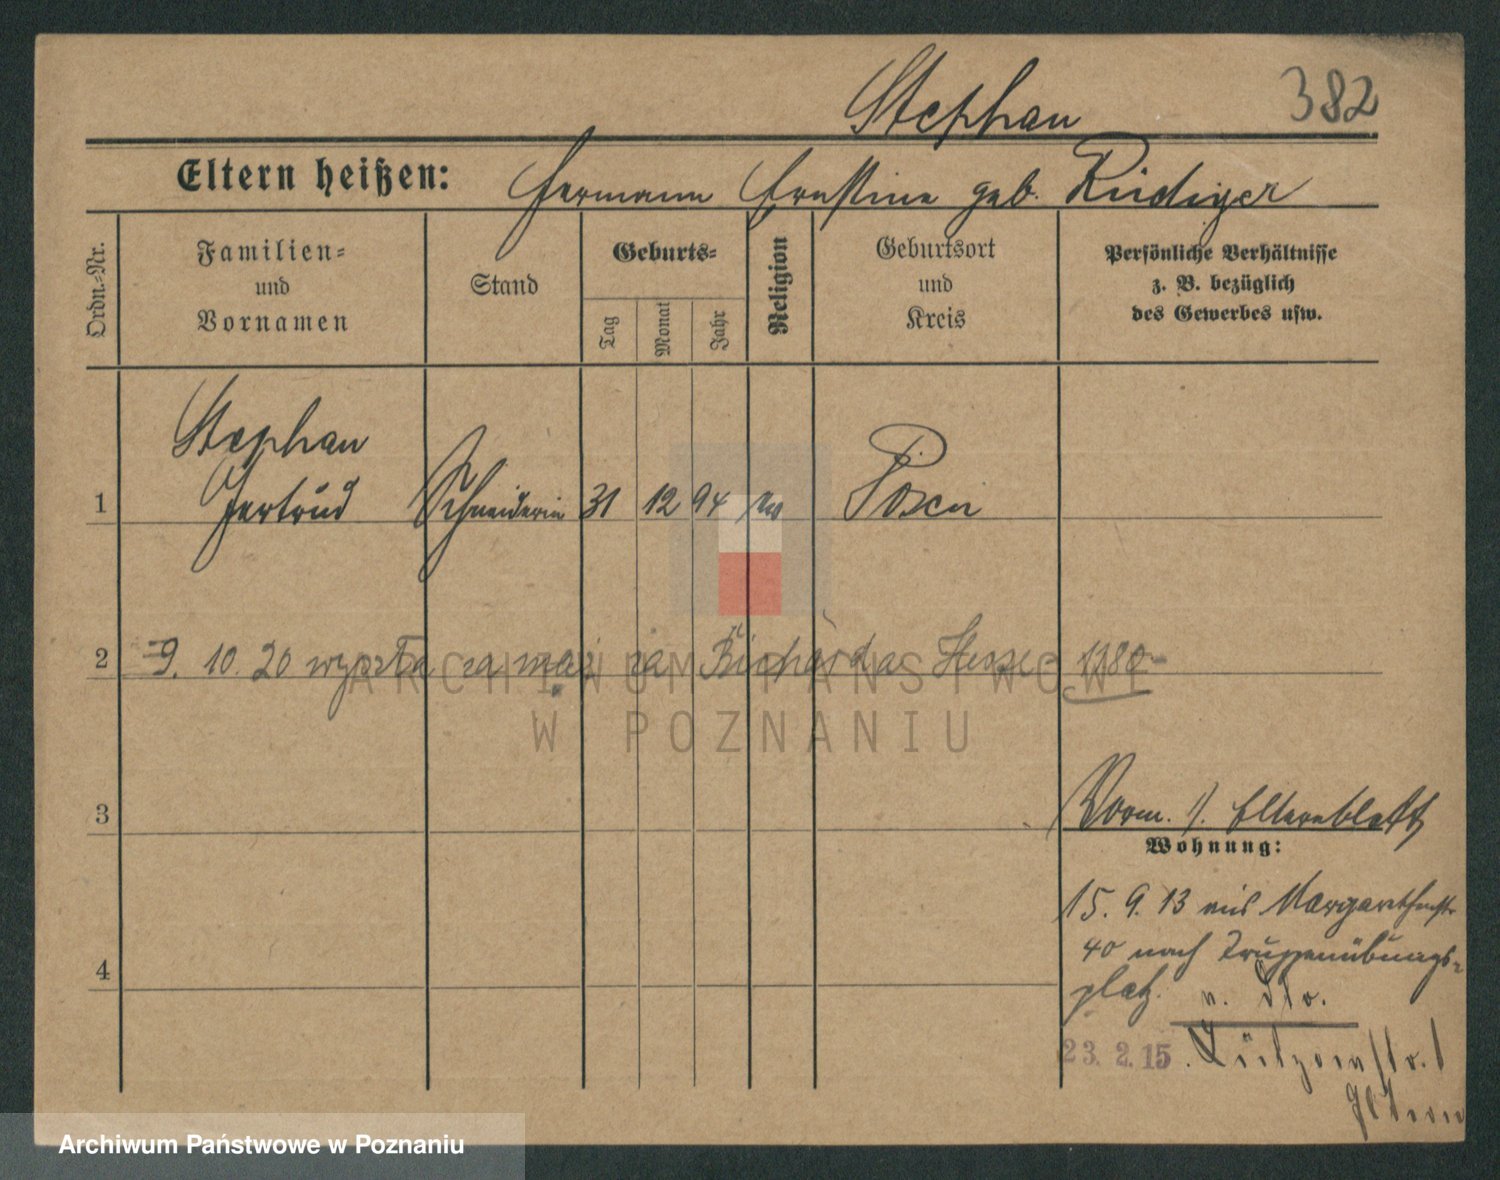 Stephan
382
Eltern heißen: Hermann Ernstine geb. Rüdiger
Ordn.-Nr.
Familien-
und
Vornamen
Stand
Geburts-
Tag
Monat
Jahr
Religion
Geburtsort
und
Kreis
Persönliche Verhältnisse
z. B. bezüglich
des Gewerbes usw.
Stephan
1 Gertrud Schneiderin 31 12 94 ev Posen
2 9. 10. 20 wyszła za mąż za Richarda Hesse
ARCHIWUM PAŃSTWOWE
W POZNANIU
3
Vorm. s. Elternblatt
Wohnung:
15. 9. 13 aus Margarethenstr
40 nach Truppenübungs-
4
platz.
23. 2. 15. Lützowstr. 1
Eltern
Archiwum Państwowe w Poznaniu